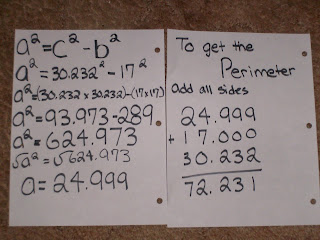 a²=c²-b²
a²=30.232²-17²
a²=(30.232x30.232)-(17x17)
a²=93.973-289
a²=624.973
√a²=√624.973
a=24.999
To get the
Perimeter
add all sides
24.999
+ 17.000
30.232
72.231